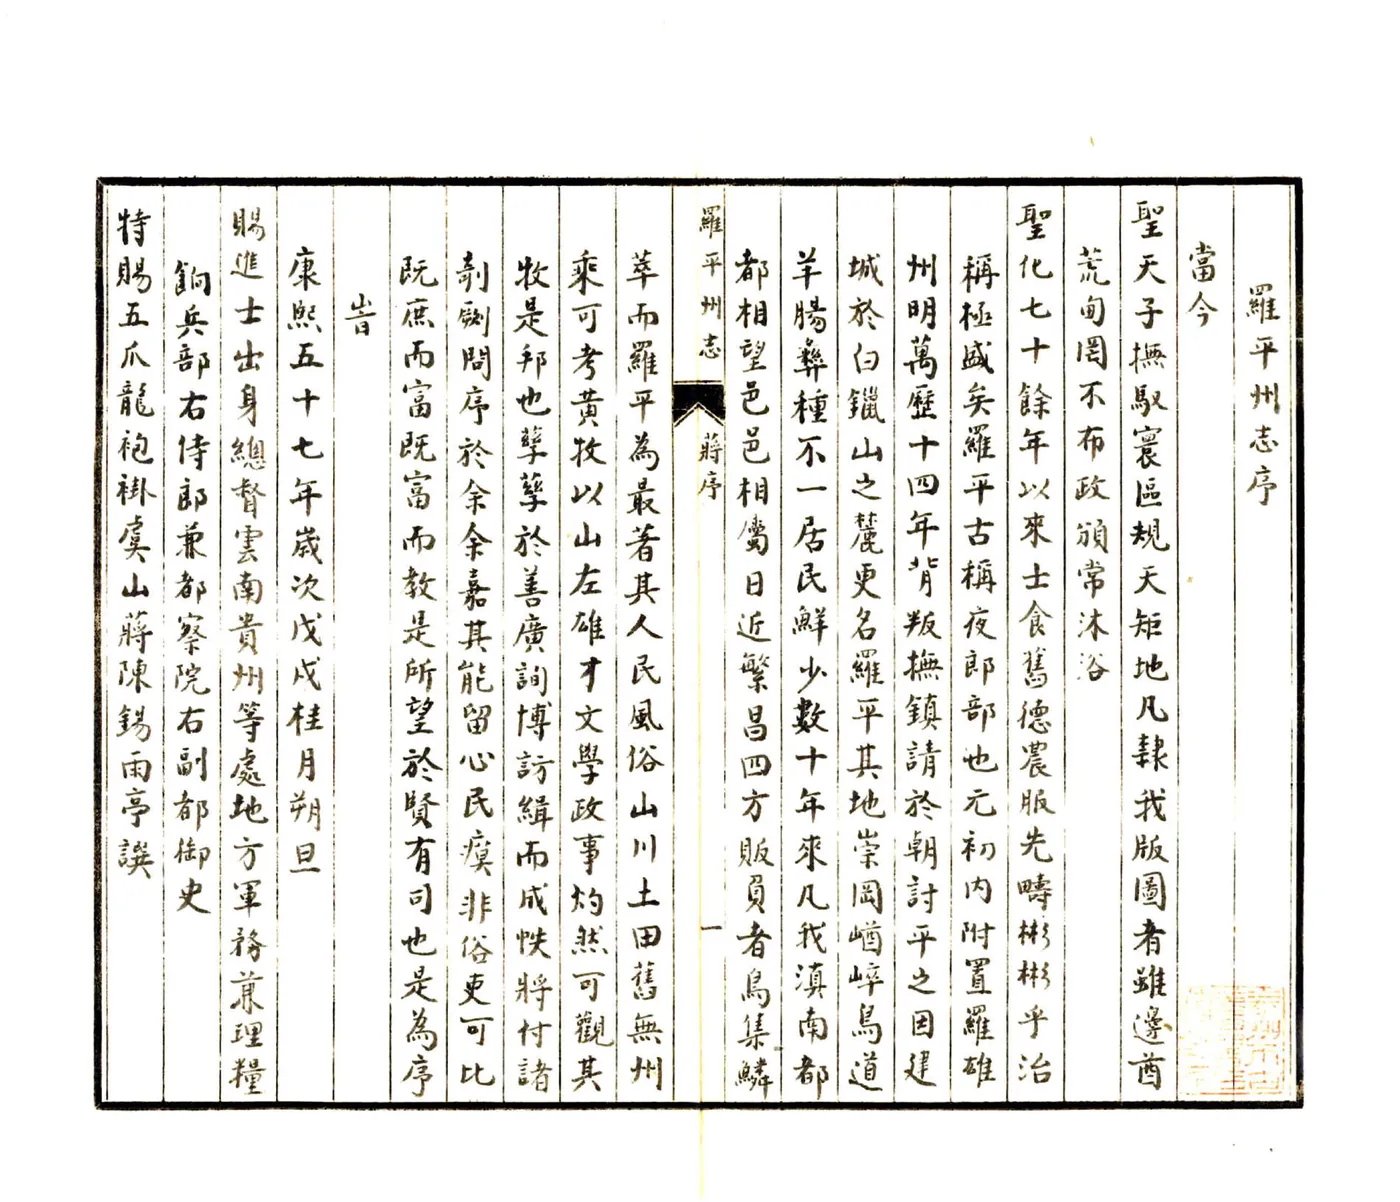 羅平州志序
當今
聖天子撫馭寰區規天矩地凡隸我版圖者雖邊酋
荒甸罔不布政頒常沐浴
聖化七十餘年以來士食舊德農服先疇彬彬乎治
稱極盛矣羅平古稱夜郎部也元初內附置羅雄
州明萬歷十四年背叛撫鎮請於朝討平之因建
城於白鑞山之麓更名羅平其地崇岡崷崪鳥道
羊腸彝種不一居民鮮少數十年來凡我滇南都
都相望邑邑相屬日近繁昌四方販負者鳥集鱗
羅平州志
蔣序
一
萃而羅平為最著其人民風俗山川土田舊無州
乘可考黃牧以山左雄才文學政事灼然可觀其
牧是邦也孳孳於善廣詢博訪緝而成帙將付諸
剞劂問序於余余嘉其能留心民瘼非俗吏可比
既庶而富既富而教是所望於賢有司也是為序
旹
康熙五十七年歲次戊戌桂月朔旦
賜進士出身總督雲南貴州等處地方軍務兼理糧
餉兵部右侍郎兼都察院右副都御史
特賜五爪龍袍褂虞山蔣陳錫雨亭譔